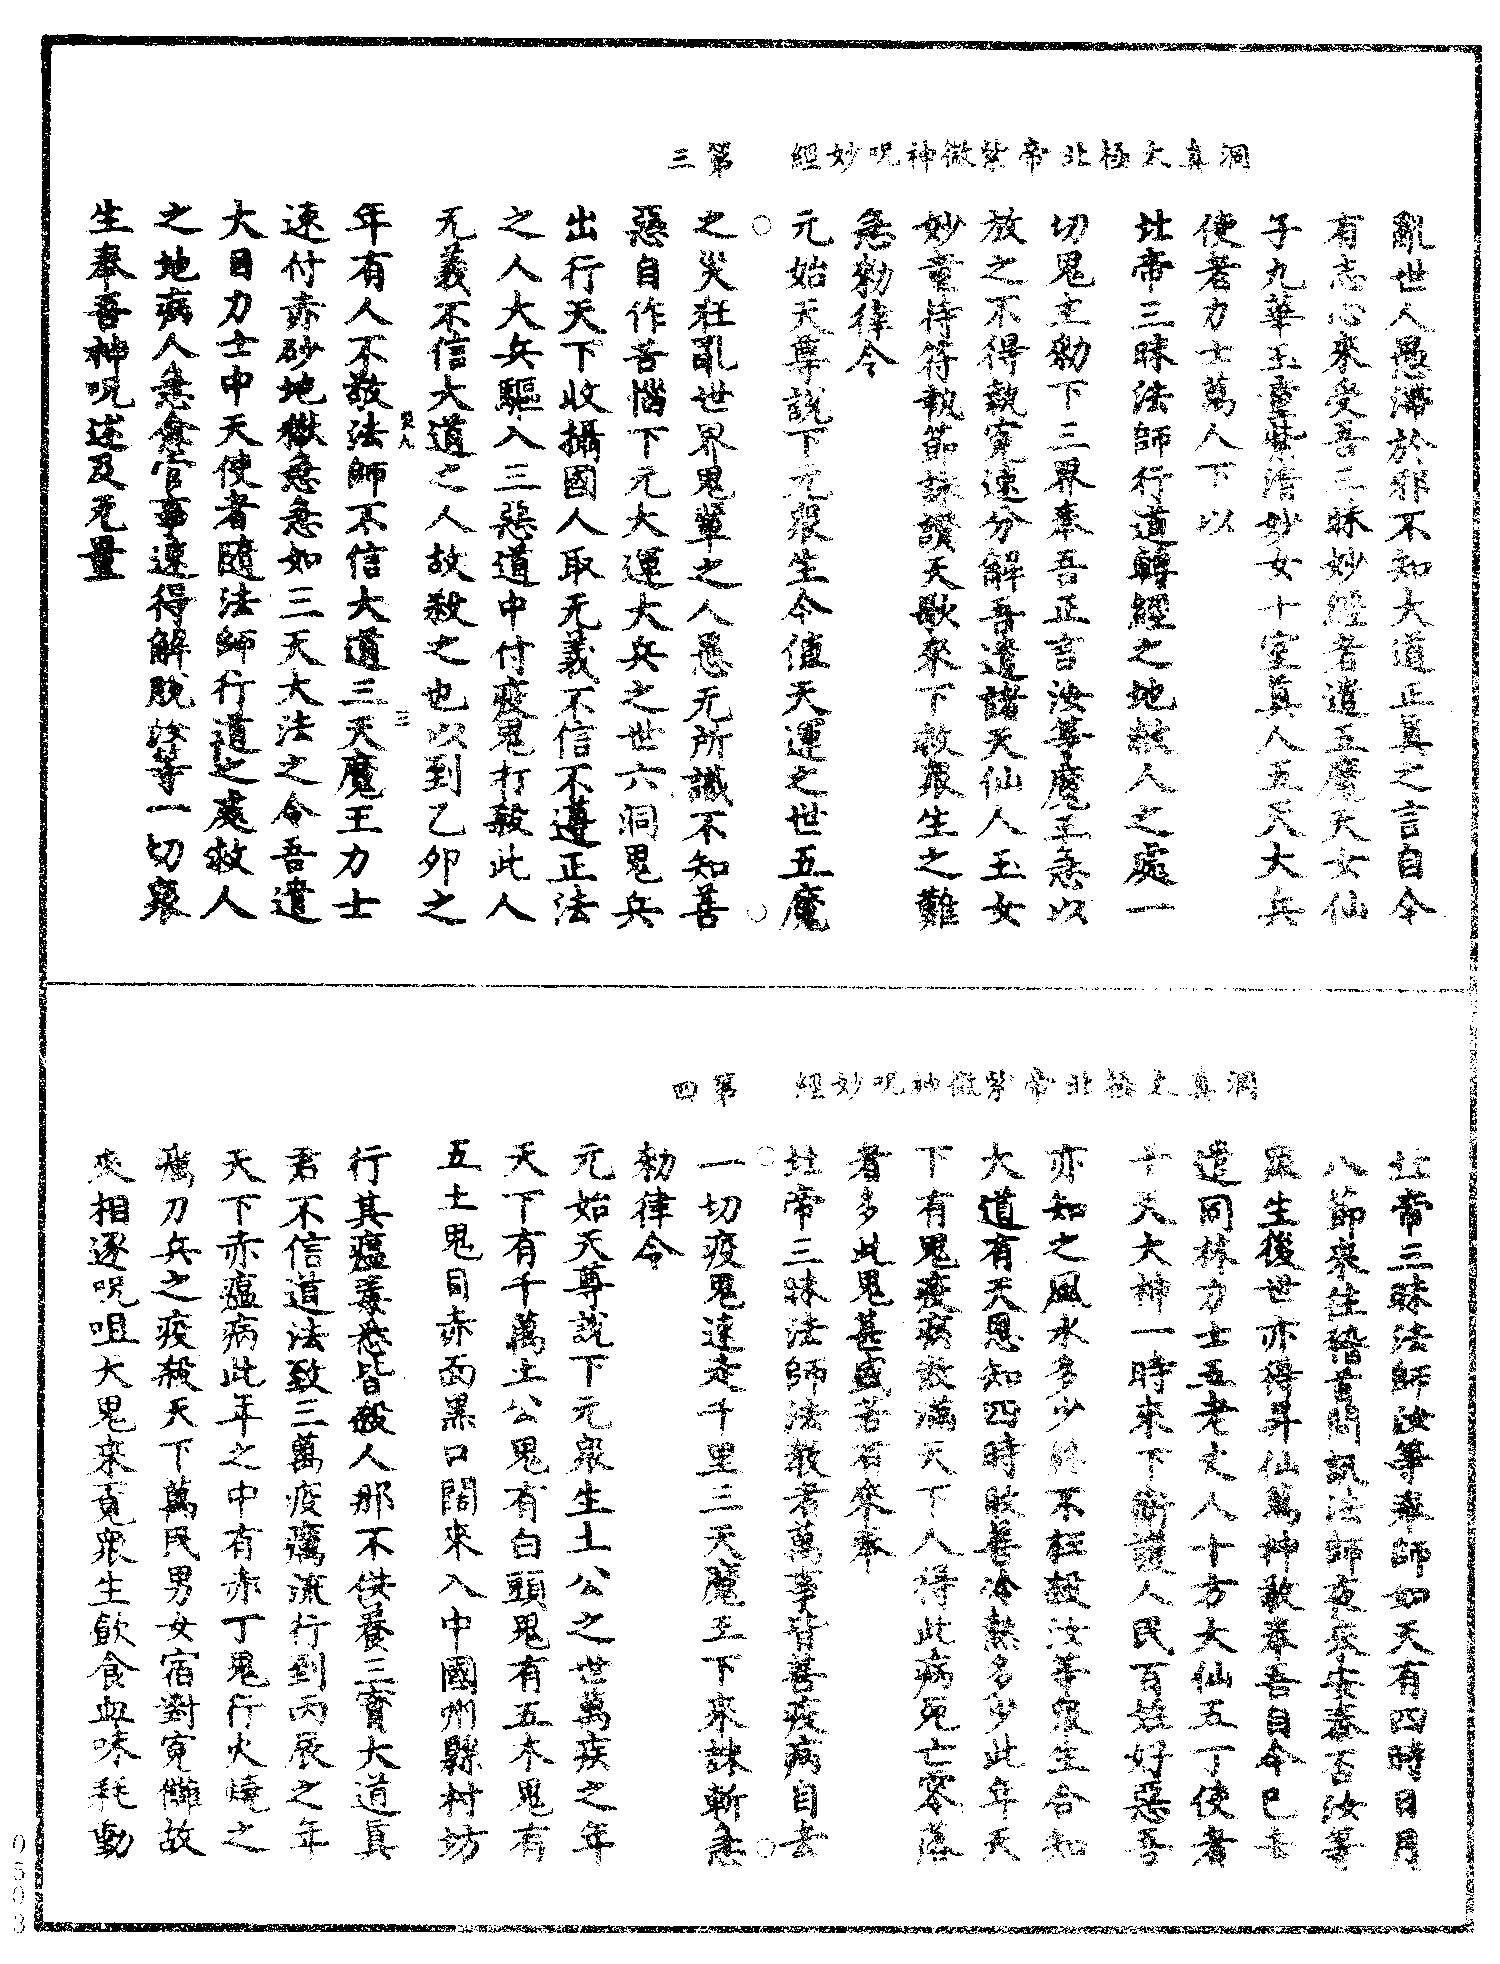 洞真太極北帝紫微神呪妙經 第三
亂世人愚滯於邪不知大道正真之言自今
有志心來受吾三昧妙經者遣五魔天女仙
子九華玉童紫清妙女十室真人五天大兵
使者力士萬人下以
北帝三昧法師行道轉經之地救人之處一
切鬼主勑下三界奉吾正言汝等魔王急以
放之不得執寃速分解吾遣諸天仙人玉女
妙童持符執節詠讚天歌來下救衆生之難
急勑律令
元始天尊說下元衆生今值天運之世五魔
之災狂亂世界鬼輩之人愚无所識不知善
惡自作苦惱下元大運大兵之世六洞鬼兵
出行天下收攝國人取无義不信不遵正法
之人大兵驅入三惡道中付疫鬼打殺此人
无義不信大道之人故殺之也以到乙卯之
年有人不敬法師不信大道三天魔王力士
速付赤砂地獄急急如三天大法之令吾遣
大目力士中天使者隨法師行道之處救人
之地病人急愈官事速得解脫汝等一切衆
生奉吾神呪述及无量
洞真太極北帝紫微神呪妙經 第四
北帝三昧法師汝等奉師如天有四時日月
八節衆生稽首問訊法師夜來安泰否汝等
衆生後世亦得昇仙萬神敬奉吾自今已去
遣同林力士五老丈人十方大仙五丁使者
千天大神一時來下衛護人民百姓好惡吾
亦知之風水多少終不枉殺汝等衆生合知
大道有天恩知四時收善冷熱多少此年天
下有鬼疫病散滿天下人得此病死亡零落
者多此鬼甚盛若有來奉
北帝三昧法師法教者萬事皆善疫病自去
一切疫鬼速走千里三天魔王下來誅斬急
勑律令
元始天尊說下元衆生土公之世萬疾之年
天下有千萬土公鬼有白頭鬼有五木鬼有
五土鬼目赤面黑口闊來入中國州縣村坊
行其瘟毒悉皆殺人那不供養三寶大道真
君不信道法致三萬疫癘流行到丙辰之年
天下赤瘟病此年之中有赤丁鬼行火燒之
癘刀兵之疫殺天下萬民男女宿對寃讎故
來相逐呪咀大鬼來覓衆生飲食血味耗動
0503